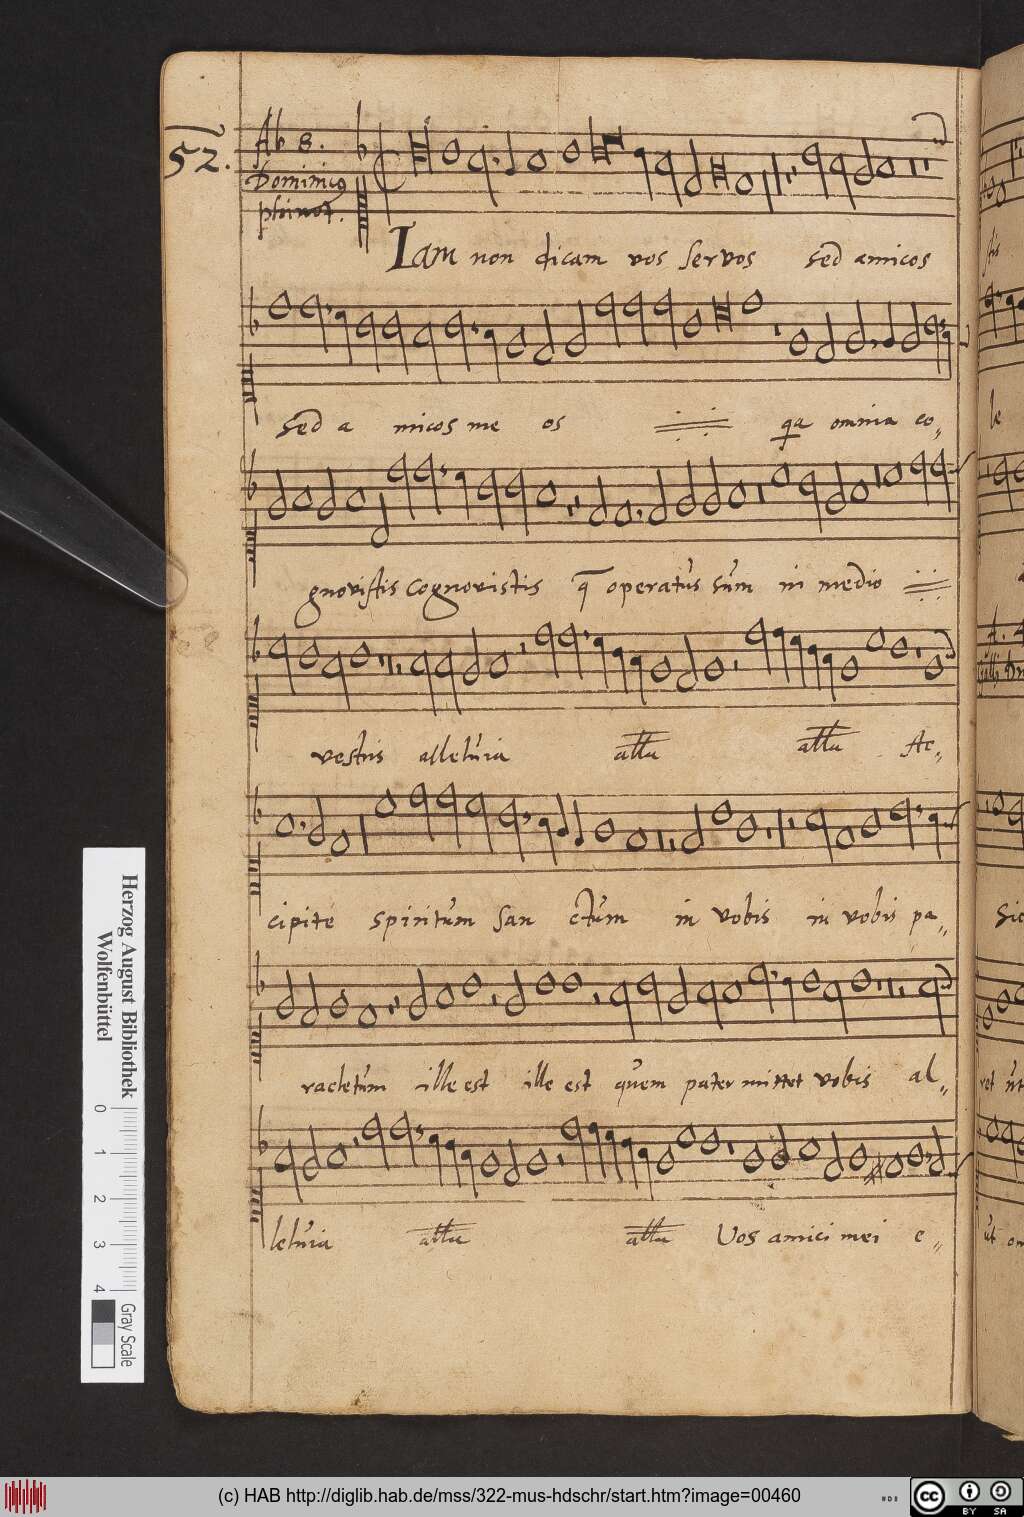 52.
Ab 8.
Dominicꝰ
phinot.
Iam non dicam vos servos sed amicos
Sed a micos me os
qa omnia co„
gnovistis cognovistis q̄ operatus sum in medio
vestris alleluia alla alla Ac„
cipite spiritum san ctum in vobis in vobis pa„
racletum ille est ille est quem pater mittet vobis al„
leluia alla alla Vos amici mei e„
Herzog August Bibliothek
Wolfenbüttel
0 1 2 3 4
Gray Scale
(c) HAB http://diglib.hab.de/mss/322-mus-hdschr/start.htm?image=00460
HAB
cc BY SA